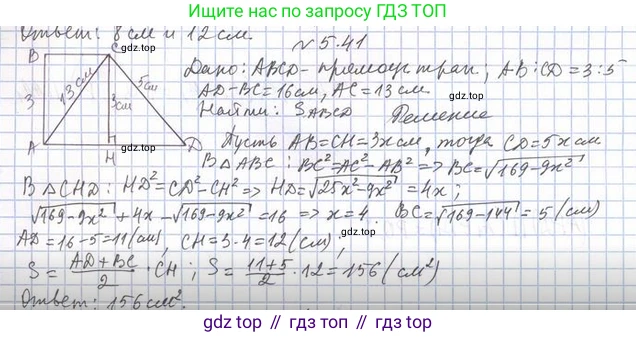 Ищите нас по запросу ГДЗ ТОП
Ответ: 8 см и 12 см.
gdz.top
N 5.41
B
C
Дано: ABCD - прямоуг. трап; AB:CD = 3:5
AD - BC = 16 см, AC = 13 см.
Найти: SABCD
Решение
3
13 см
3 см
5 см
A
H
D
Пусть AB = CH = 3x см, тогда CD = 5x см
В △ ABC: BC² = AC² - AB² => BC = √169 - 9x²
В △ CHD: HD² = CD² - CH² => HD = √25x² - 9x² = 4x;
√169 - 9x² + 4x - √169 - 9x² = 16 => x = 4.
BC = √169 - 144 = 5 (см)
AD = 16 - 5 = 11 (см), CH = 3 · 4 = 12 (см);
S = AD + BC / 2 · CH; S = 11 + 5 / 2 · 12 = 156 (см²)
Ответ: 156 см².
gdz.top // gdz.top // gdz.top